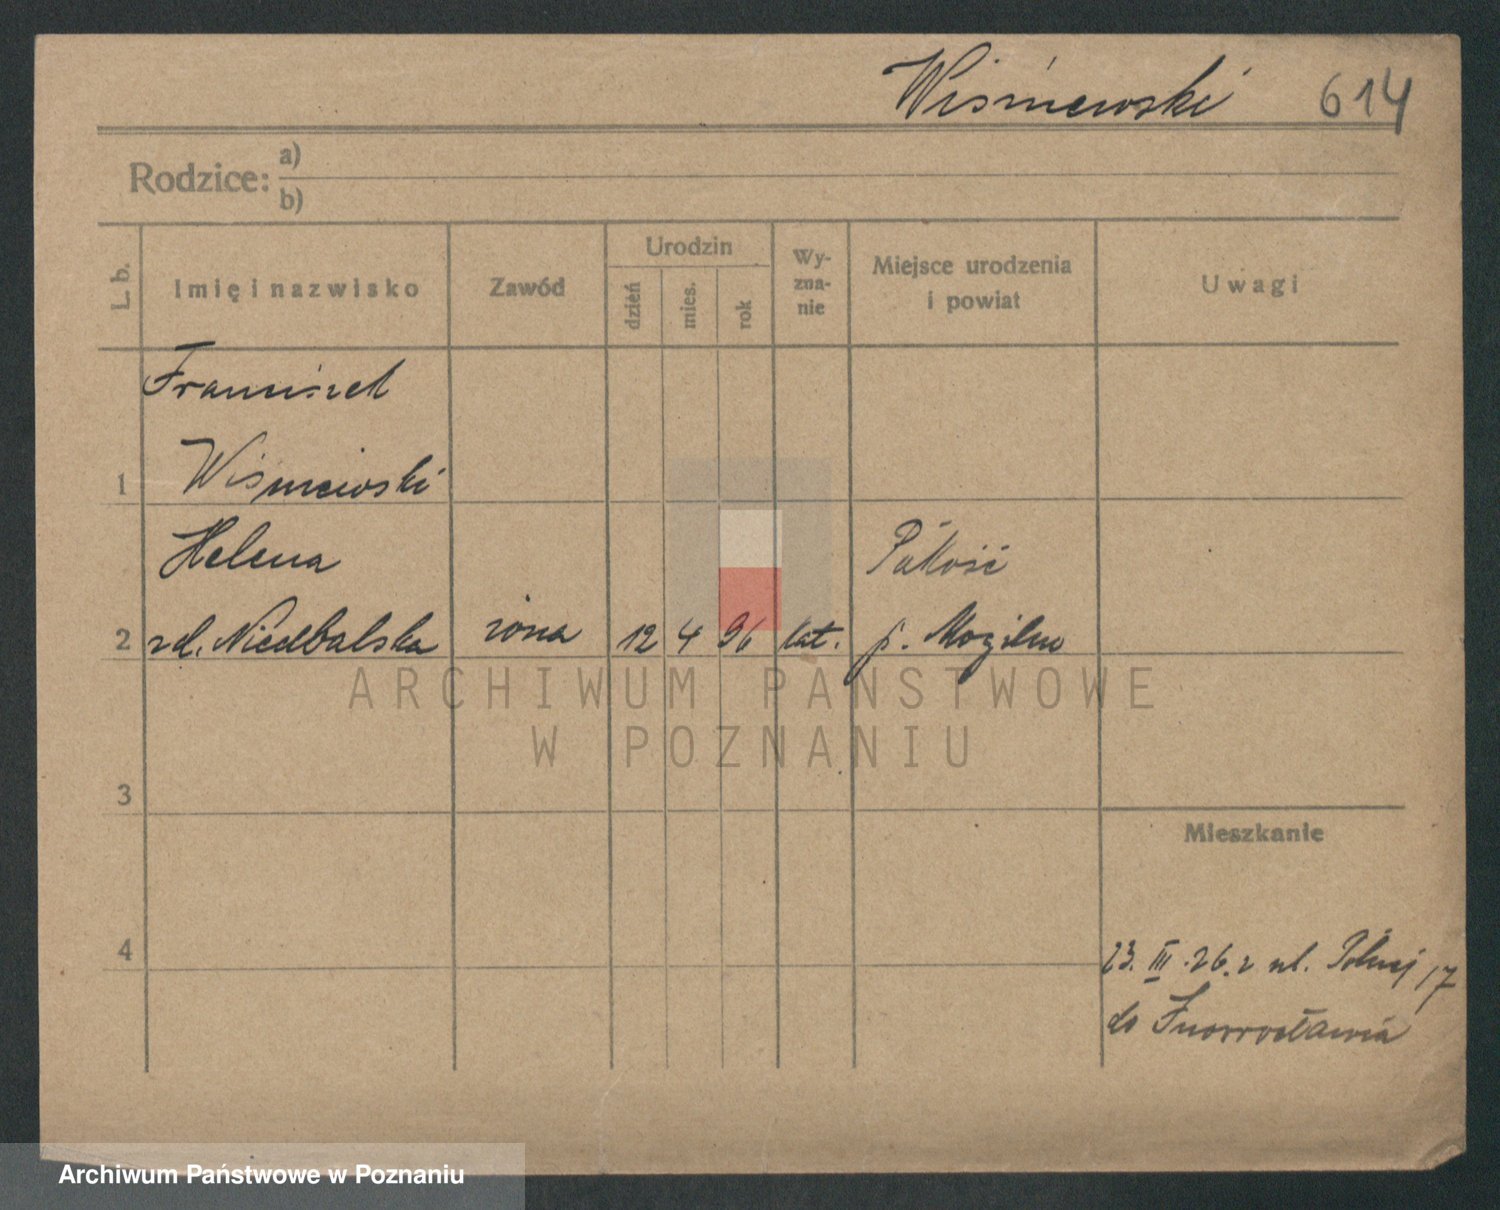 Wiśniewski 614
Rodzice: a)
b)
L. b.
Imię i nazwisko
Zawód
Urodzin
dzień
mies.
rok
Wy-
zna-
nie
Miejsce urodzenia
i powiat
Uwagi
Franciszek
1 Wiśniewski
Helena
Pakość
2 zd. Niedbalska żona 12 4 96 kat. p. Mogilno
ARCHIWUM PAŃSTWOWE
W POZNANIU
3
Mieszkanie
4
23. III. 26. z ul. Polnej 17
do Inowrocławia
Archiwum Państwowe w Poznaniu